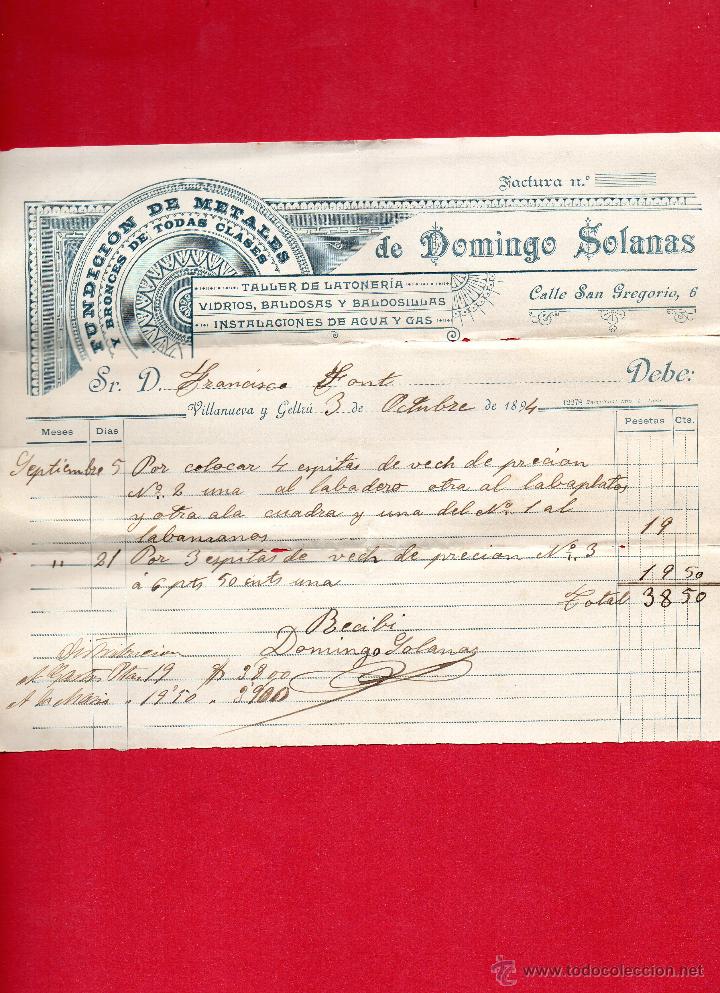 Factura n.º
FUNDICIÓN DE METALES
Y BRONCES DE TODAS CLASES
de Domingo Solanas
TALLER DE LATONERÍA
VIDRIOS, BALDOSAS Y BALDOSILLAS
INSTALACIONES DE AGUA Y GAS
Calle San Gregorio, 6
Sr. D. Francisco Font Debe:
Villanueva y Geltrú 3 de Octubre de 1894
Meses Días Pesetas Cts.
Septiembre 5 Por colocar 4 espitas de vech de precion
Nº. 2 una al labadero otra al labaplatos
y otra ala cuadra y una del Nº. 1 al
labamanos 19
" 21 Por 3 espitas de vech de precion Nº. 3
á 6 pts 50 cnts una 19 50
Total 38 50
Recibi
Domingo Solanas
19
19'50
www.todocoleccion.net